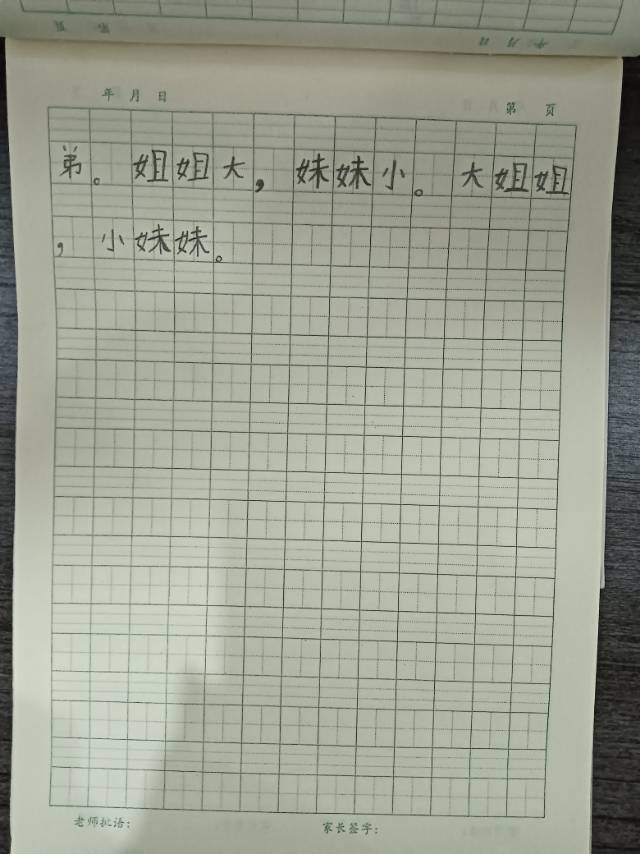 年 月 日 第 页
弟。姐姐大，妹妹小。大姐姐
，小妹妹。
老师批语： 家长签字：